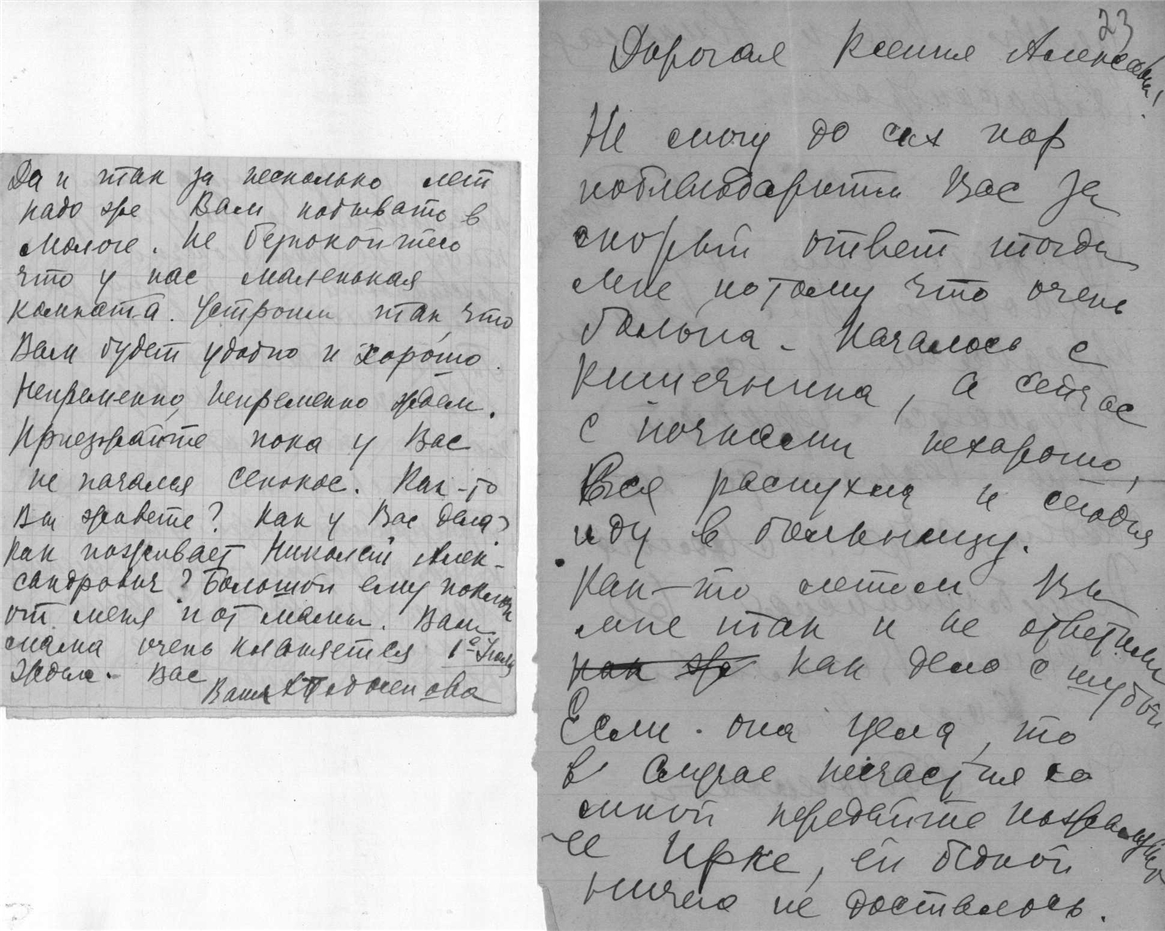 Да и так за несколько лет
надо же Вам побывать в
Мологе. Не беспокойтесь
что у нас маленькая
комната. Устроим так, что
Вам будет удобно и хорошо.
Непременно, непременно ждем.
Приезжайте пока у Вас
не начался сенокос. Как-то
Вы живете? Как у Вас дела?
Как поживает Николай Алек-
сандрович? Большой ему поклон
от меня и от мамы. Вам
мама очень кланяется
Ждем. Вас
Ваша
23
Дорогая Ксения
Не могу до сих пор
поблагодарить Вас за
скорый ответ тогда
мне потому что очень
больна. Началось с
кишечника, а сейчас
с почками нехорошо,
Вся распухла и сегодня
иду в больницу.
Как-то летом Вы
мне так и не ответили
как же как дело с шубой
Если она цела, то
в случае несчастия со
мной передайте пожалуйста
ее Ирке, ей бедной
ничего не досталось.